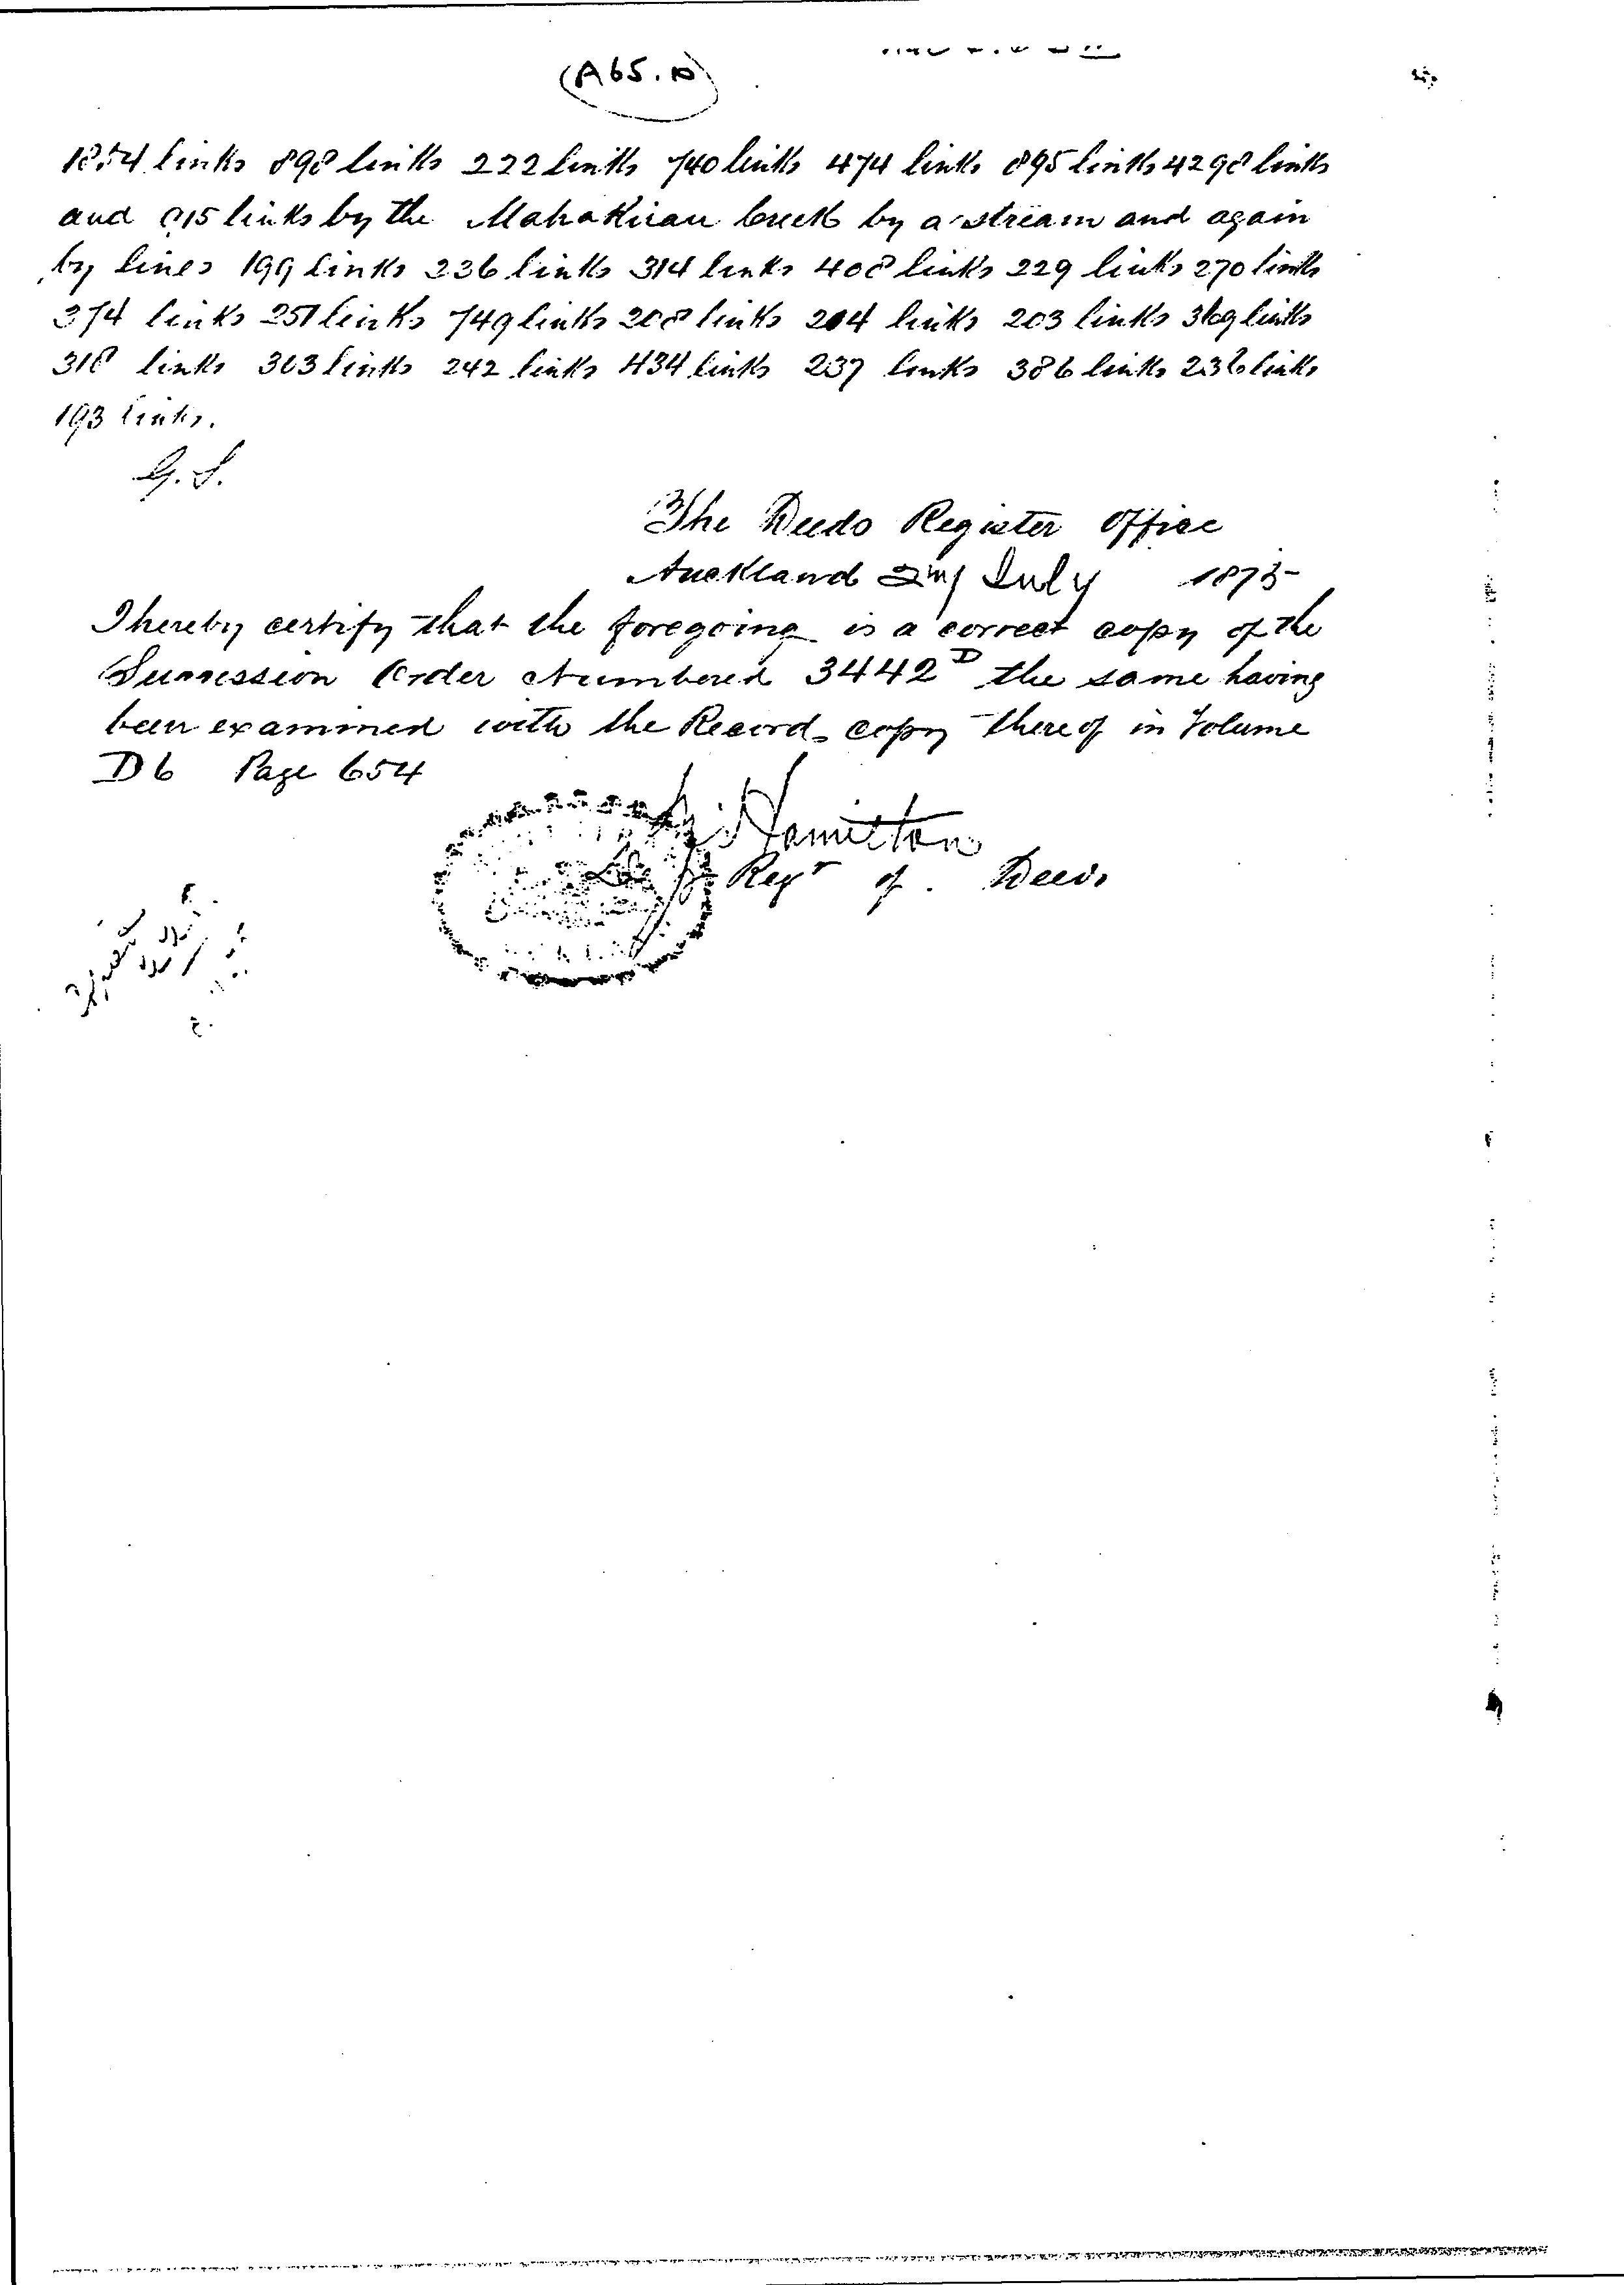 (A65.D)
1854 links 898 links 222 links 740 links 474 links 895 links 4298 links
and 815 links by the Mahakirau Creek by a stream and again
by lines 199 links 236 links 314 links 408 links 229 links 270 links
374 links 251 links 749 links 208 links 204 links 203 links 369 links
318 links 303 links 242 links 434 links 237 links 386 links 236 links
193 links.
G. S.
The Deeds Register Office
Auckland 2nd July 1875
I hereby certify that the foregoing is a correct copy of the
Succession Order Numbered 3442D the same having
been examined with the Record copy thereof in Volume
D6 Page 654
Hamilton
Regr of Deeds